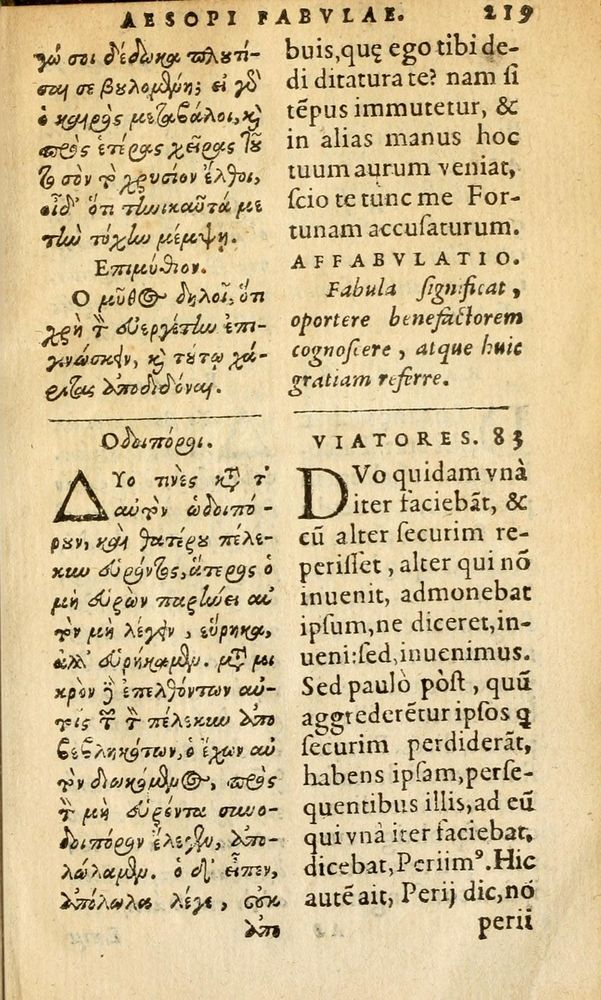 AESOPI FABVLAE. 219
γώ σοι δέδωκα πλουτί-
σαι σε βουλομένη; εἰ γὰρ
ὁ καιρὸς μεταβάλοι, καὶ
πρὸς ἑτέρας χεῖρας τοῦ
το σὸν τὸ χρυσίον ἔλθοι,
οἶδ' ὅτι τηνικαῦτά με
τὴν τύχην μέμψῃ.
Επιμύθιον.
Ο μῦθος δηλοῖ, ὅτι
χρὴ τὸν εὐεργέτην ἐπι-
γινώσκειν, καὶ τούτῳ χά-
ριτας ἀποδιδόναι.
Οδοιπόροι.
ΔΥο τινὲς κατὰ τ'
αὐτὸν ὡδοιπό-
ρουν, καὶ θατέρου πέλε-
κυν εὑρόντος, ἅτερος ὁ
μὴ εὑρὼν παρῄνει αὐ
τὸν μὴ λέγειν, εὕρηκα,
ἀλλ' εὑρήκαμεν. μετὰ μι
κρὸν δὲ ἐπελθόντων αὐ-
τοῖς τῶν τὸν πέλεκυν ἀπο
βεβληκότων, ὁ ἔχων αὐ
τὸν διωκόμενος, πρὸς
τὸν μὴ εὑρόντα συνο-
δοιπόρον ἔλεγεν, ἀπο-
λώλαμεν. ὁ δ' εἶπεν,
ἀπόλωλα λέγε, οὐκ
ἀπο
buis, quę ego tibi de-
di ditatura te? nam ſi
tẽpus immutetur, &
in alias manus hoc
tuum aurum veniat,
ſcio te tunc me For-
tunam accuſaturum.
AFFABVLATIO.
Fabula ſignificat,
oportere benefactorem
cognoſcere, atque huic
gratiam referre.
VIATORES. 83
DVo quidam vnà
iter faciebãt, &
cũ alter ſecurim re-
periſſet, alter qui nõ
inuenit, admonebat
ipſum, ne diceret, in-
ueni: ſed, inuenimus.
Sed paulò pòſt, quũ
aggrederẽtur ipſos ꝗ
ſecurim perdiderãt,
habens ipſam, perſe-
quentibus illis, ad eũ
qui vnà iter faciebat,
dicebat, Periimꝰ. Hic
autẽ ait, Perij dic, nõ
perii